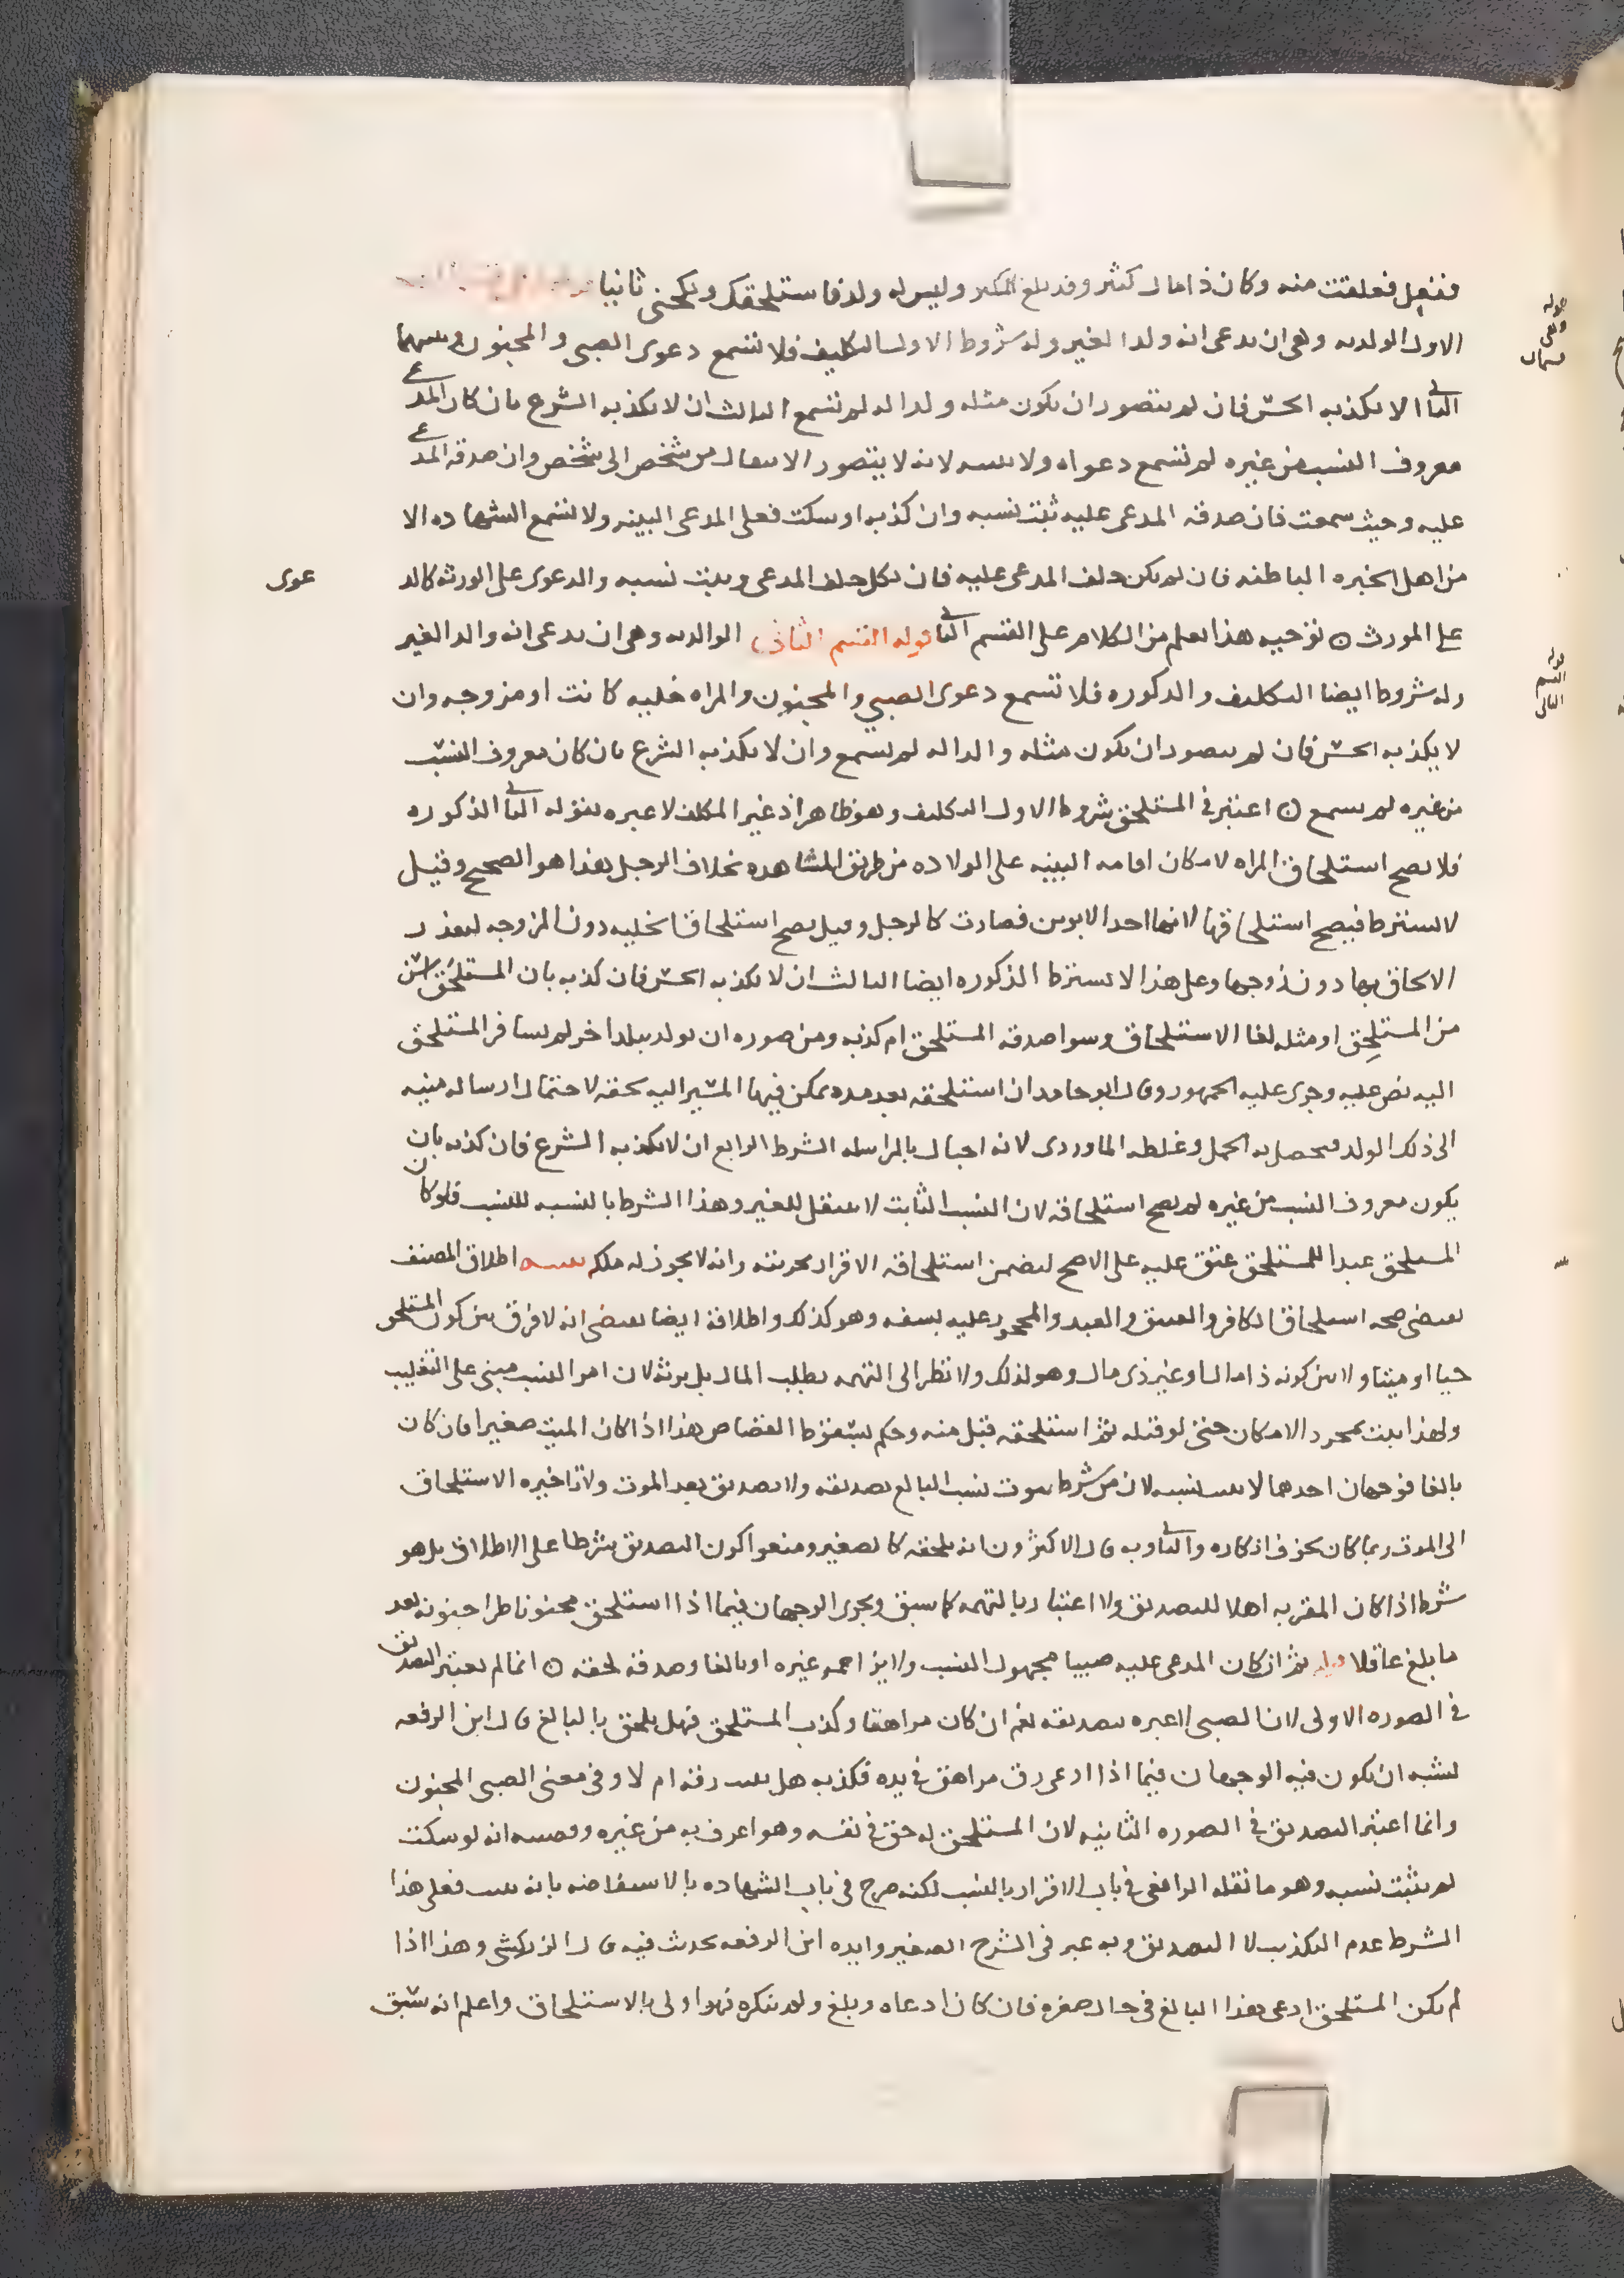 ففعل فعلقت منه وكان ذا مال كثير وقد بلغ الكبر وليس له ولد فاستلحقك ونكحني ثانيا
الاول الولديه وهي ان يدعى انه ولد الغير وله شروط الاول التكليف فلا تسمع دعوى الصبى والمجنون
الثانى الا يكذبه الحس فان لم يتصور ان يكون مثله ولدا له لم تسمع الثالث ان لا يكذبه الشرع بان كان المدعى
معروف النسب من غيره لم تسمع دعواه ولا بينته لانه لا يتصور الانتقال من شخص الى شخص وان صدقه المدعى
عليه وحيث سمعت فان صدقه المدعى عليه ثبت نسبه وان كذبه او سكت فعلى المدعى البينه ولا تسمع الشهاده الا
من اهل الخبره الباطنه فان لم يكن حلف المدعى عليه فان نكل حلف المدعى ويثبت نسبه والدعوى على الورثه كالد
عوى
على المورث ⊙ توجيه هذا يعلم من الكلام على القسم الثانى قوله القسم الثانى الوالديه وهى ان يدعى انه والد الغير
وله شروط ايضا التكليف والذكوره فلا تسمع دعوى الصبي والمجنون والمراه خليه كانت او مزوجه وان
لا يكذبه الحس فان لم يتصور ان يكون مثله والدا له لم تسمع وان لا يكذبه الشرع بان كان معروف النسب
من غيره لم يسمع ⊙ اعتبر في المستلحق شروط الاول التكليف وهو ظاهر اذ غير المكلف لا عبره بقوله الثانى الذكوره
فلا يصح استلحاق المراه لامكان اقامه البينه على الولاده من طريق المشاهده بخلاف الرجل هذا هو الصحيح وقيل
لا يشترط فيصح استلحاقها لانها احد الابوين فصارت كالرجل وقيل يصح استلحاق الخليه دون المزوجه لتعذر
الالحاق بها دون زوجها وعلى هذا لا يشترط الذكوره ايضا الثالث ان لا يكذبه الحس فان كذبه بان المستلحَق اسن
من المستلحِق او مثله لغا الاستلحاق وسوا صدقه المستلحق ام كذبه ومن صوره ان يولد ببلد اخر لم يسافر المستلحق
اليه نص عليه وجرى عليه الجمهور وقال ابو حامد ان استلحقه بعد مده يمكن فيها المسير اليه لحقه لاحتمال ارساله منيه
الى ذلك الولد فيحصل به الحمل وغلطه الماوردى لانه احبال بالمراسله الشرط الرابع ان لا يكذبه الشرع فان كذبه بان
يكون معروف النسب من غيره لم يصح استلحاقه لان النسب الثابت لا ينتقل للغير وهذا الشرط بالنسبه للنسب فلو كان
المستلحق عبدا للمستلحق عتق عليه على الاصح لتضمن استلحاقه الاقرار بحريته وانه لا يجوز له ملكه تنبيه اطلاق المصنف
يقتضى صحه استلحاق الكافر والعتيق والعبد والمحجور عليه بسفه وهو كذلك واطلاقه ايضا يقتضى انه لا فرق بين كون المستلحق
حيا او ميتا ولا بين كونه ذا مال او غير ذى مال وهو لذلك ولا نظر الى التهمه بطلب المال بل يرثه لان امر النسب مبنى على التغليب
ولهذا يثبت بمجرد الامكان حتى لو قتله ثم استلحقه قبل منه وحكم بسقوط القصاص هذا اذا كان الميت صغيرا فان كان
بالغا فوجهان احدهما لا يثبت نسبه لان من شرط ثبوت نسب البالغ تصديقه ولا تصديق بعد الموت ولان تاخيره الاستلحاق
الى الموت ربما كان خوف انكاره والثانى وبه قال الاكثرون انه يلحقه كالصغير ومنعوا كون التصديق شرطا على الاطلاق بل هو
شرط اذا كان المقر به اهلا للتصديق ولا اعتبار بالتهمه كما سبق ويجرى الوجهان فيما اذا استلحق مجنونا طرا جنونه بعد
ما بلغ عاقلا قوله ثم ان كان المدعى عليه صبيا مجهول النسب ولا يزاحمه غيره او بالغا وصدقه لحقه ⊙ انما لم يعتبر التصديق
في الصوره الاولى لان الصبى لا عبره بتصديقه نعم ان كان مراهقا وكذب المستلحق فهل يلحق بالبالغ قال ابن الرفعه
يشبه ان يكون فيه الوجهان فيما اذا ادعى رق مراهق في يده فكذبه هل يثبت رقه ام لا وفى معنى الصبى المجنون
وانما اعتبر التصديق في الصوره الثانيه لان المستلحق له حق في نفسه وهو اعرف به من غيره وقضيته انه لو سكت
لم يثبت نسبه وهو ما نقله الرافعى في باب الاقرار بالنسب لكنه صرح في باب الشهاده بالاستفاضه بانه يثبت فعلى هذا
الشرط عدم التكذيب لا التصديق وبه عبر فى الشرح الصغير وايده ابن الرفعه بحديث فيه قال الزركشى وهذا اذا
لم يكن المستلحق ادعى هذا البالغ فى حال صغره فان كان ادعاه وبلغ ولم ينكره فهو اولى بالاستلحاق واعلم انه سبق
قوله
القسم
الثانى